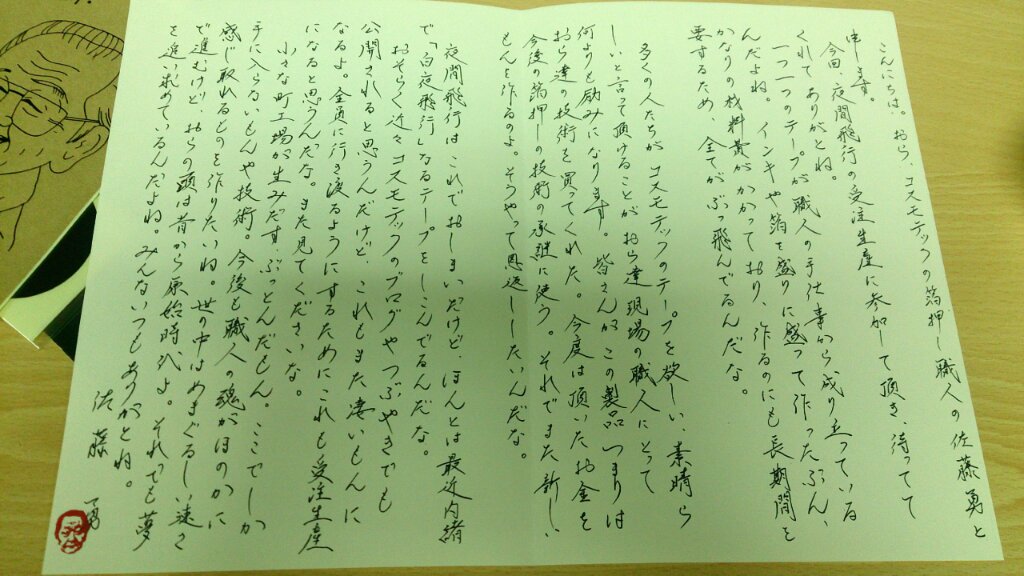 こんにちは。おら、コスモテックの箔押し職人の佐藤勇と
申す。
今回、夜間飛行の受注生産に参加して頂き、待ってて
くれてありがとね。
一つ一つのテープが職人の手仕事から成り立っている
んだよね。インキや箔を盛りに盛って作ったぶん、
かなりの材料費がかかっており、作るのにも長期間を
要するため、全てがぶっ飛んでるんだな。
多くの人たちがコスモテックのテープを欲しい、素晴ら
しいと言って頂けることがおら達現場の職人にとって
何よりも励みになります。皆さんがこの製品つまりは
おら達の技術を買ってくれた。今度は頂いたお金を
今後の箔押しの技術の承継に使う。それでまた新しい
もんを作るのよ。そうやって恩返ししたいんだな。
夜間飛行はこれでおしまいだけど、ほんとは最近内緒
で「白夜飛行」なるテープをしこんでるんだな。
おそらく近々コスモテックのブログやつぶやきでも
公開されると思うんだけど、これもまた凄いもんに
なるよ。全員に行き渡るようにするためにこれも受注生産
になると思うんだな。また見てくださいな。
小さな町工場が生みだすぶっとんだもん。ここでしか
手に入らないもんや技術。今後も職人の魂がほのかに
感じ取れるものを作りたいね。世の中はめまぐるしい速さ
で進むけど、おらの頭は昔から原始時代よ。それでも夢
を追い求めているんだよね。みんないつもありがとね。
佐藤 勇